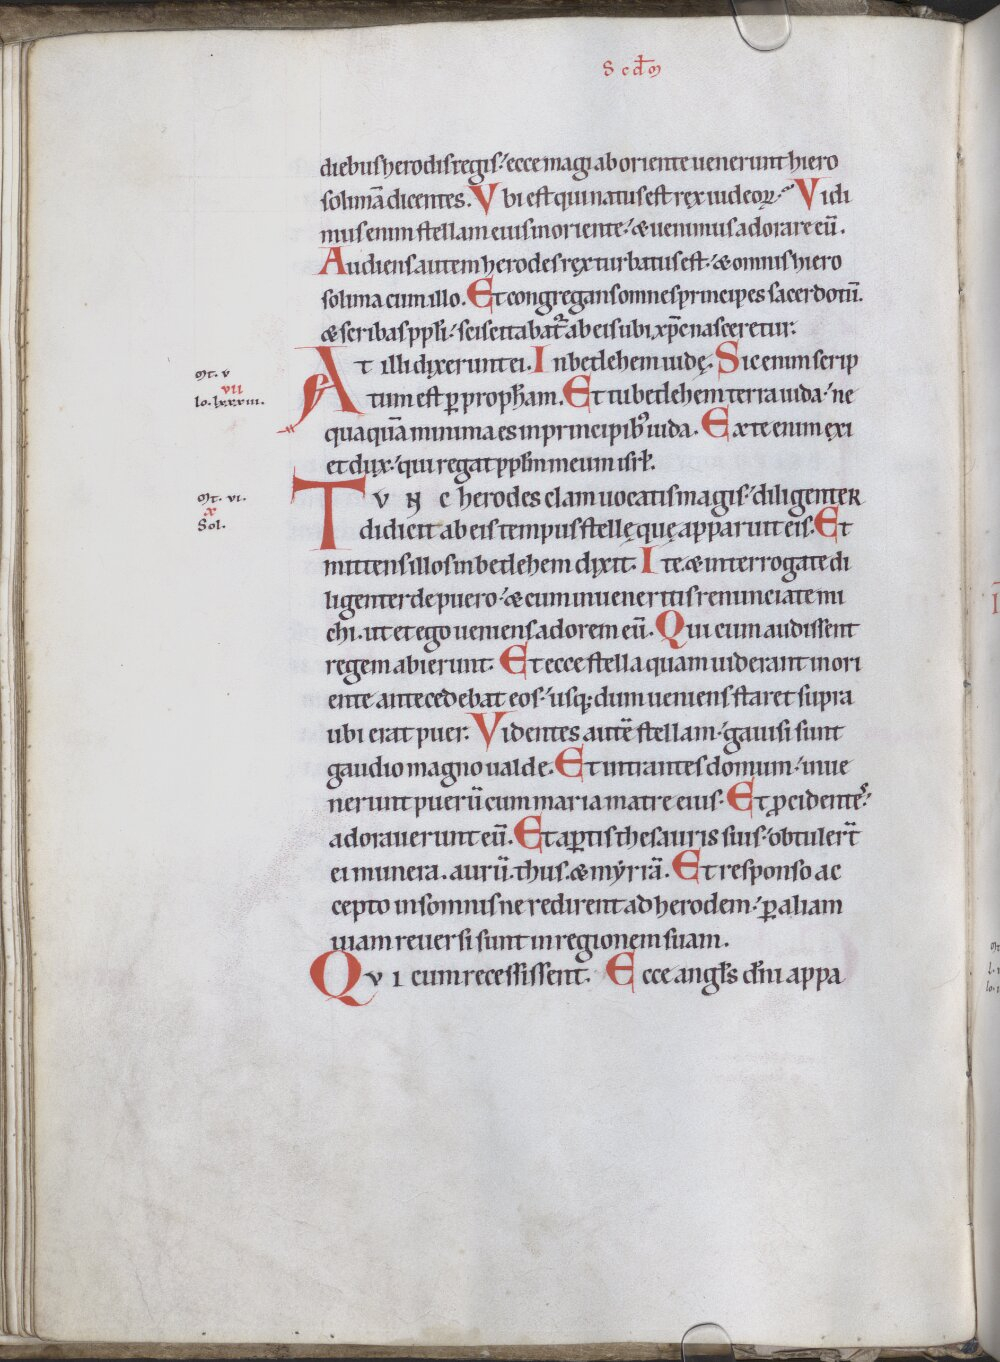 Scdm̄
diebus herodis regis ecce magi ab oriente uenerunt hiero
solimā dicentes. Vbi est qui natus est rex iudeoꝝ. Vidi
mus enim stellam eius in oriente & uenimus adorare eū.
Audiens autem herodes rex turbatus est & omnis hiero
solima cum illo. Et congregans omnes principes sacerdotū.
& scribas ppłi sciscitabat᷑ ab eis ubi xp̄c nasceretur.
At illi dixerunt ei. In betlehem iudę. Sic enim scrip
tum est ꝑ proph̄am. Et tu betlehem terra iuda ne
quaquā minima es in principibꝰ iuda. Ex te enim exi
et dux qui regat pplm̄ meum isrł.
Mt. v
vii
Io. lxxxiii.
TVNC herodes clam uocatis magis diligenter
didicit ab eis tempus stellę quę apparuit eis. Et
mittens illos in betlehem dixit. Ite & interrogate di
ligenter de puero & cum inueneritis renunciate mi
chi. ut et ego ueniens adorem eū. Qui cum audissent
regem abierunt. Et ecce stella quam uiderant in ori
ente antecedebat eos usq; dum ueniens staret supra
ubi erat puer. Videntes autē stellam gauisi sunt
gaudio magno ualde. Et intrantes domum inue
nerunt puerū cum maria matre eius. Et ꝓcidentes
adorauerunt eū. Et aꝑtis thesauris suis obtulert̄
ei munera. aurū. thus. & myrrā. Et responso ac
cepto in somnis ne redirent ad herodem ꝑ aliam
uiam reuersi sunt in regionem suam.
Mt. vi.
&
Sol.
QVI cum recessissent. Ecce angłs dn̄i appa